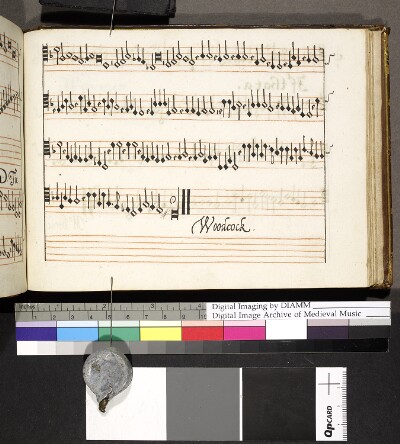 Woodcock.
Digital Imaging by DIAMM
Digital Image Archive of Medieval Music
QPCARD